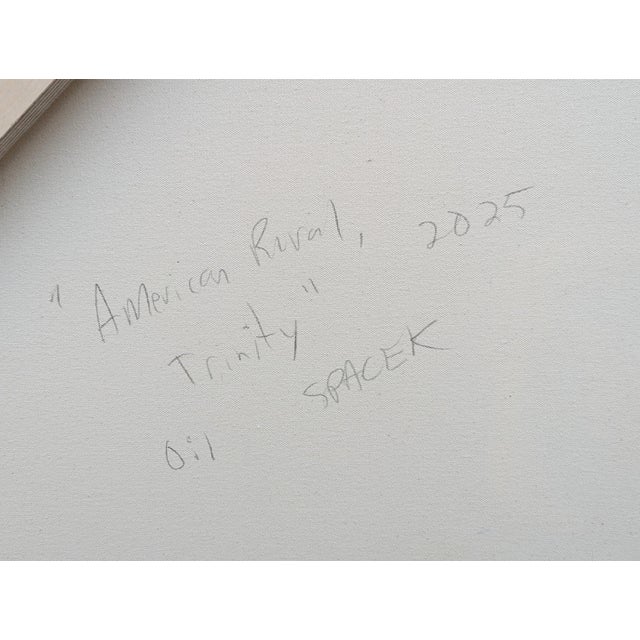 "American Rural, 2025
Trinity"
SPACEK
Oil